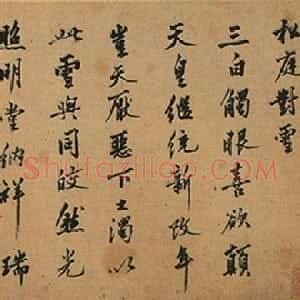 私庭對雪
三白觸眼喜欲顛
天皇繼統新改年
豈天厭惡下土濁以
此雪與同皎然光
照明堂納祥瑞
Shufazidian.com